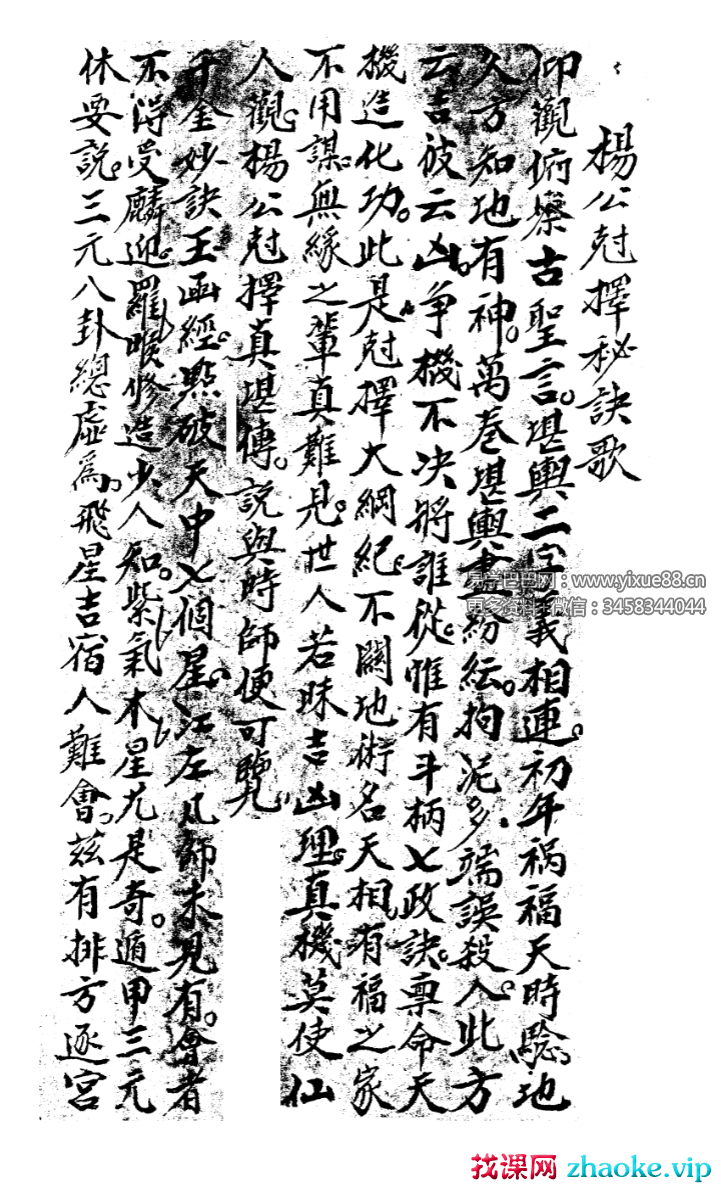 楊公尅擇秘訣歌
仰觀俯察古聖言。堪輿二字義相連。初年祸福天時驗。地
久方知地有神。萬卷堪輿書紛紜。拘泥多端誤殺人。此方
云吉彼云凶。争機不决將誰從。惟有斗柄七政訣。禀命天
機造化功。此是尅擇大綱紀。不關地術名天相。有福之家
不用謀。無緣之輩真難見。世人若昧吉凶理。真機莫使仙
人觀。楊公尅擇真堪傳。說與時師便可覽
千金妙訣玉函經。點破天中七個星。江左凡師未見有。會者
不得受麟迎。羅睺修造少人知。紫氣木星尤是奇。遁甲三元
休要說。三元八卦總虛爲。飛星吉宿人難會。兹有排方逐宮
易学巴巴网：www.yixue88.cn
更多资料+微信：3458344044
找课网 zhaoke.vip